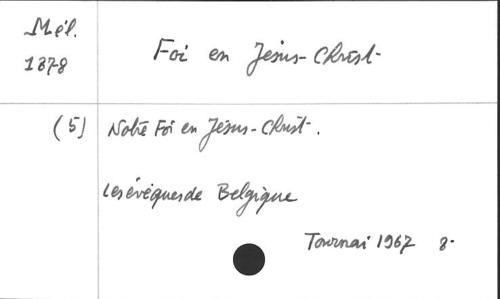 Mél.
1878
Foi en Jésus-Christ
(5) Notre Foi en Jésus-Christ.
Les évêques de Belgique
Tournai 1967 8-